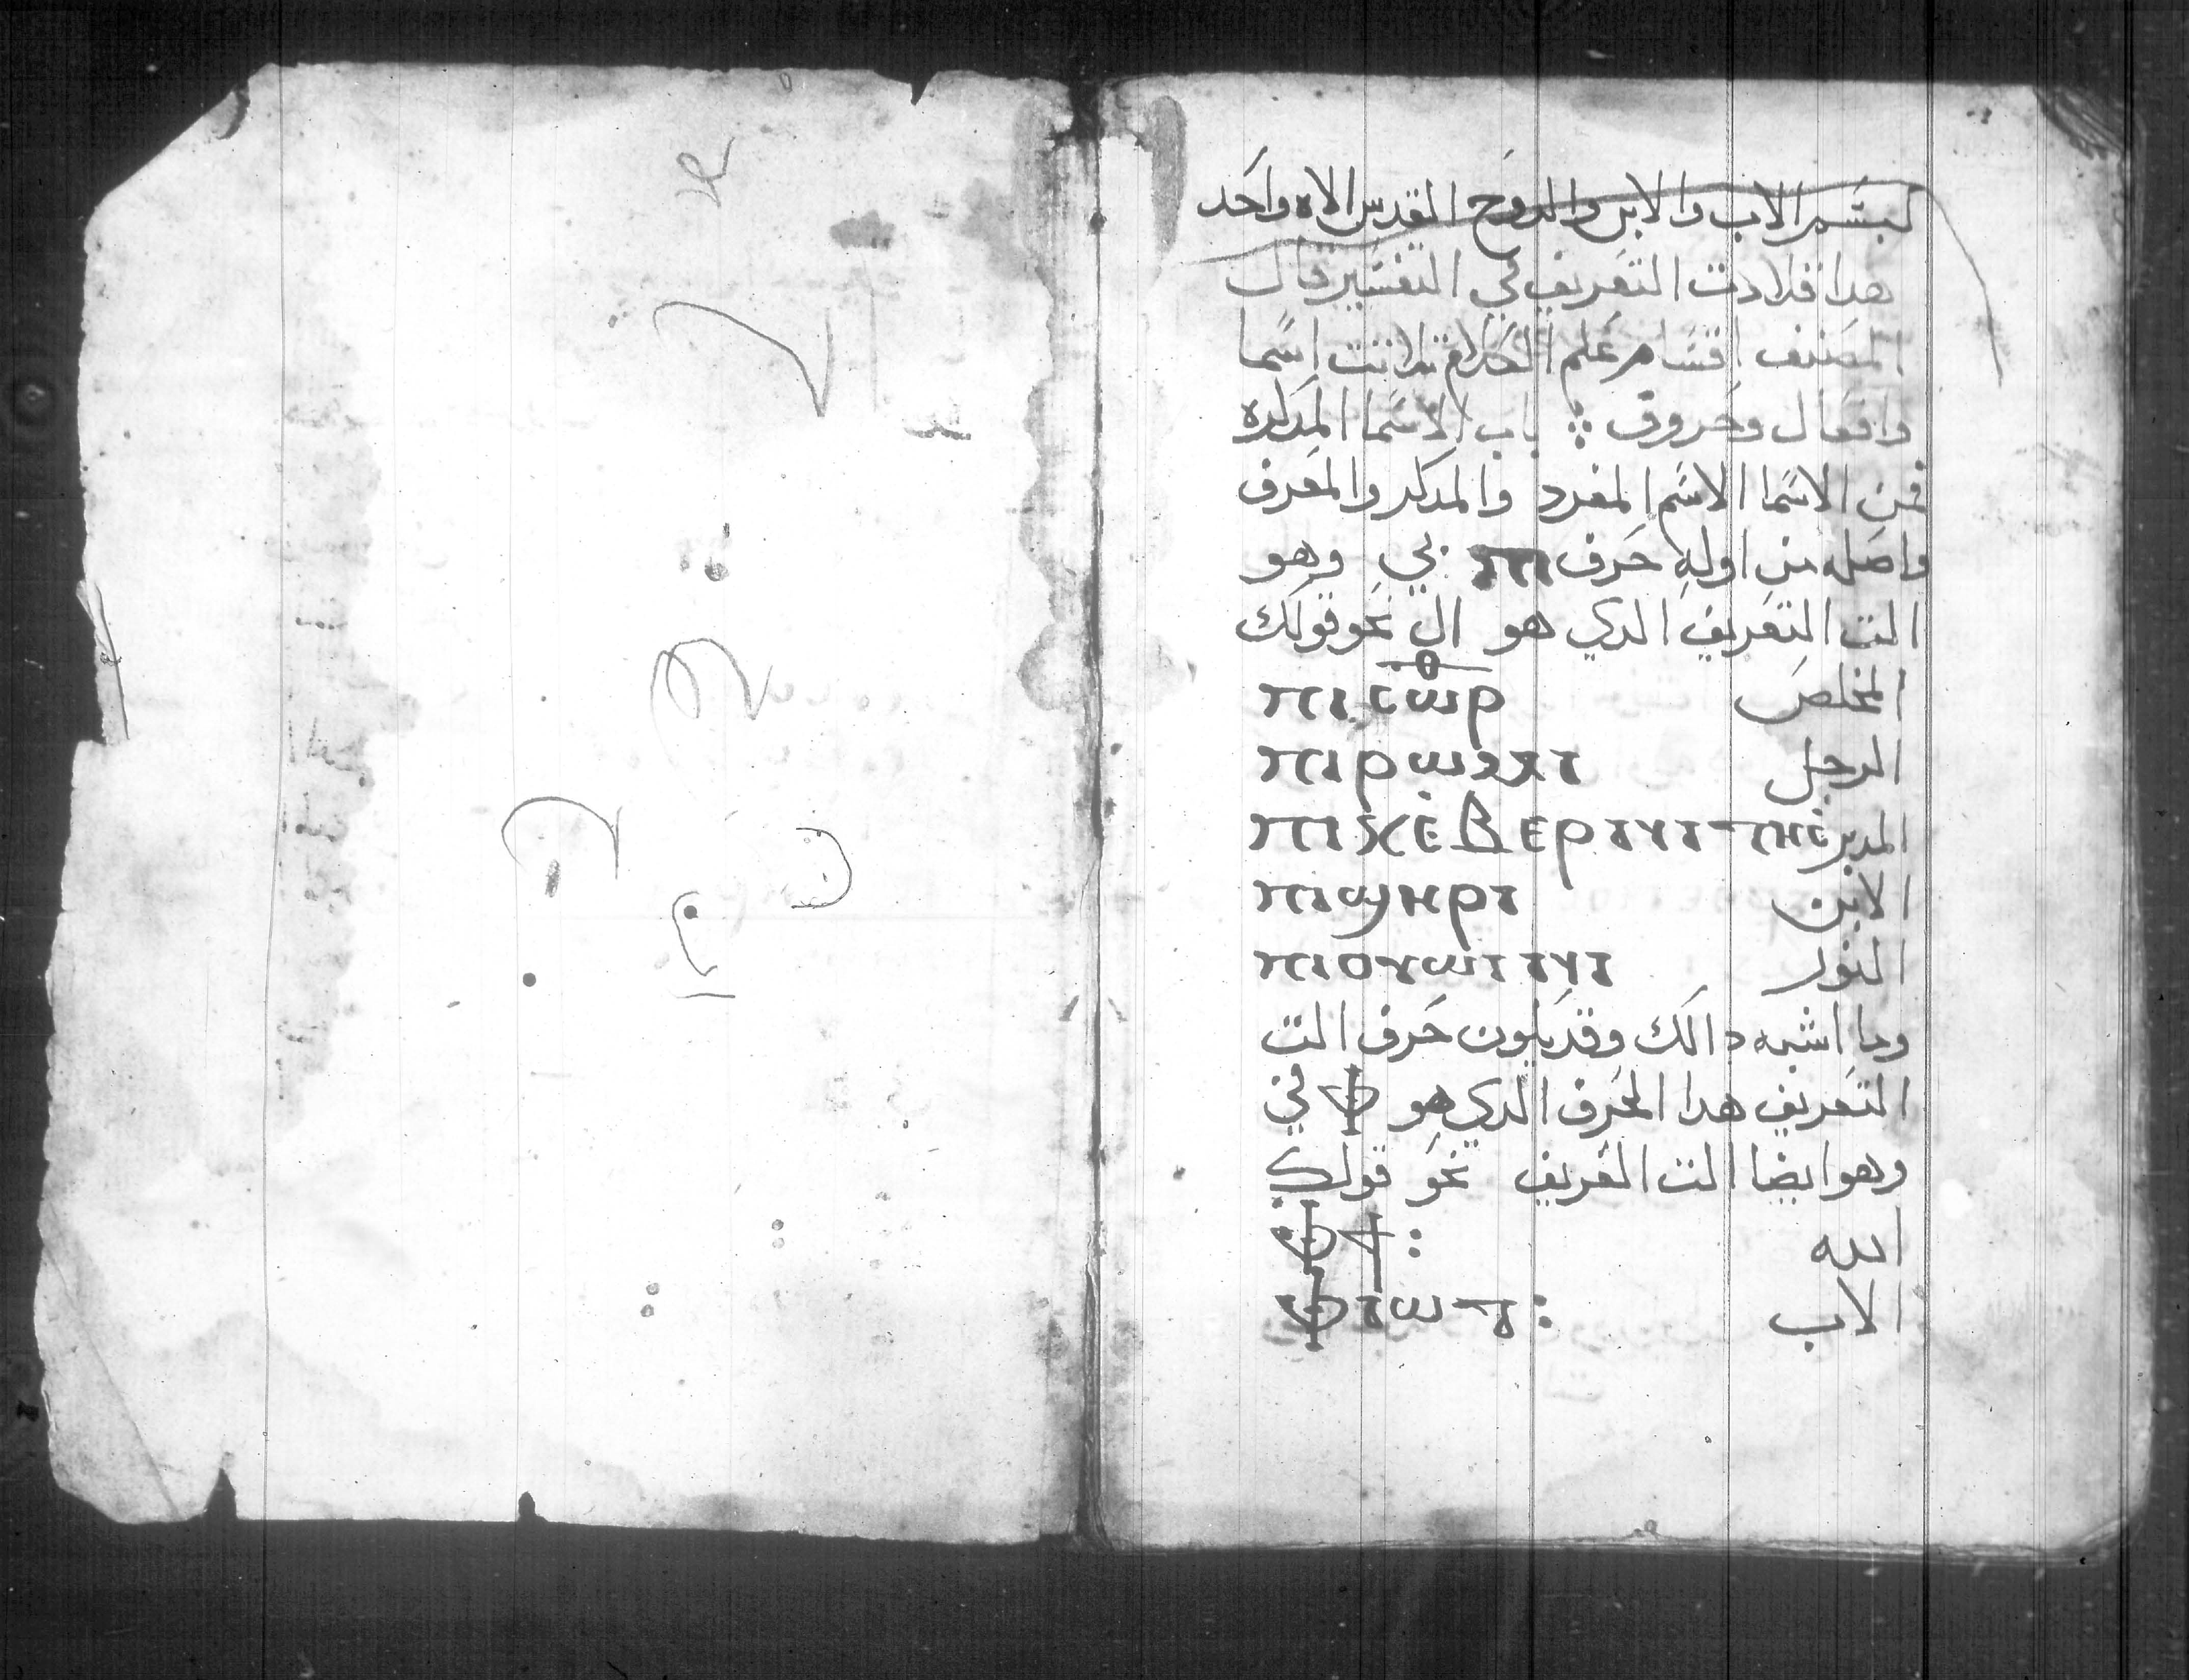 بسم الاب والابن والروح القدس الاه واحد
هدا قلادت التعريف في التفسير قال
المصنف اقسام علم الكلام تلاتت اسما
وافعال وحروف ⁘ باب الاسما المدكره
فمن الاسما الاسم المفرد والمدكر والمعرف
واصله من اوله حرف ⲡⲓ بي وهو
الت التعريف الدي هو ال نحو قولك
ⲡⲓⲥⲱⲣ المخلص
ⲡⲓⲣⲱⲙⲓ الرجل
ⲡⲓⲭⲉⲃⲉⲣⲛⲓⲧⲏⲥ المدبر
ⲡⲓϣⲏⲣⲓ الابن
ⲡⲓⲟⲩⲱⲓⲛⲓ النور
وما اشبه دالك وقد يكون حرف الت
التعريف هدا الحرف الدي هو ⲫ في
وهو ايضا الت التعريف نحو قولك
ⲫϯ : الله
ⲫⲓⲱⲧ : الاب